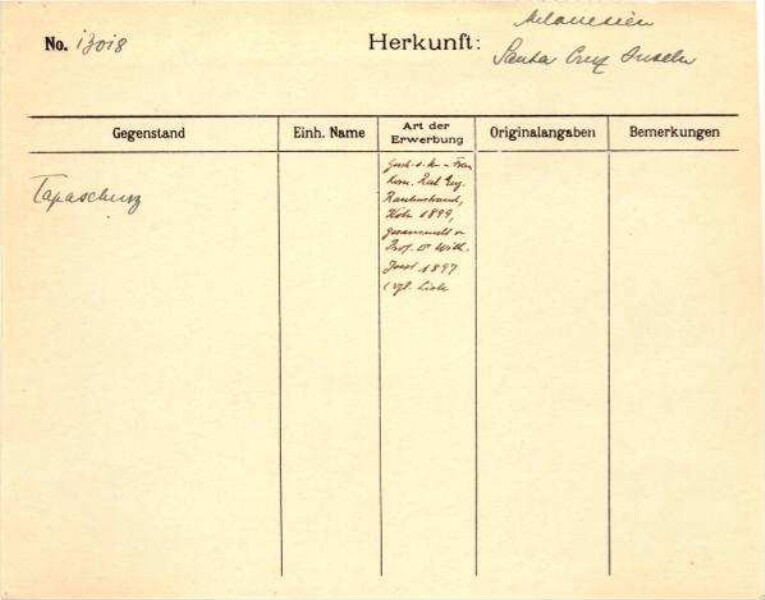 No. 13018
Herkunft:
Melanesien
Santa Cruz Inseln
Gegenstand
Einh. Name
Art der
Erwerbung
Originalangaben
Bemerkungen
Tapaschurz
Gesch. v. Frau
Kom. Rat Eug.
Rautenstrauch,
Köln 1899,
gesammelt v.
Prof. Dr Wilh.
Joest 1897
(vgl. Liste